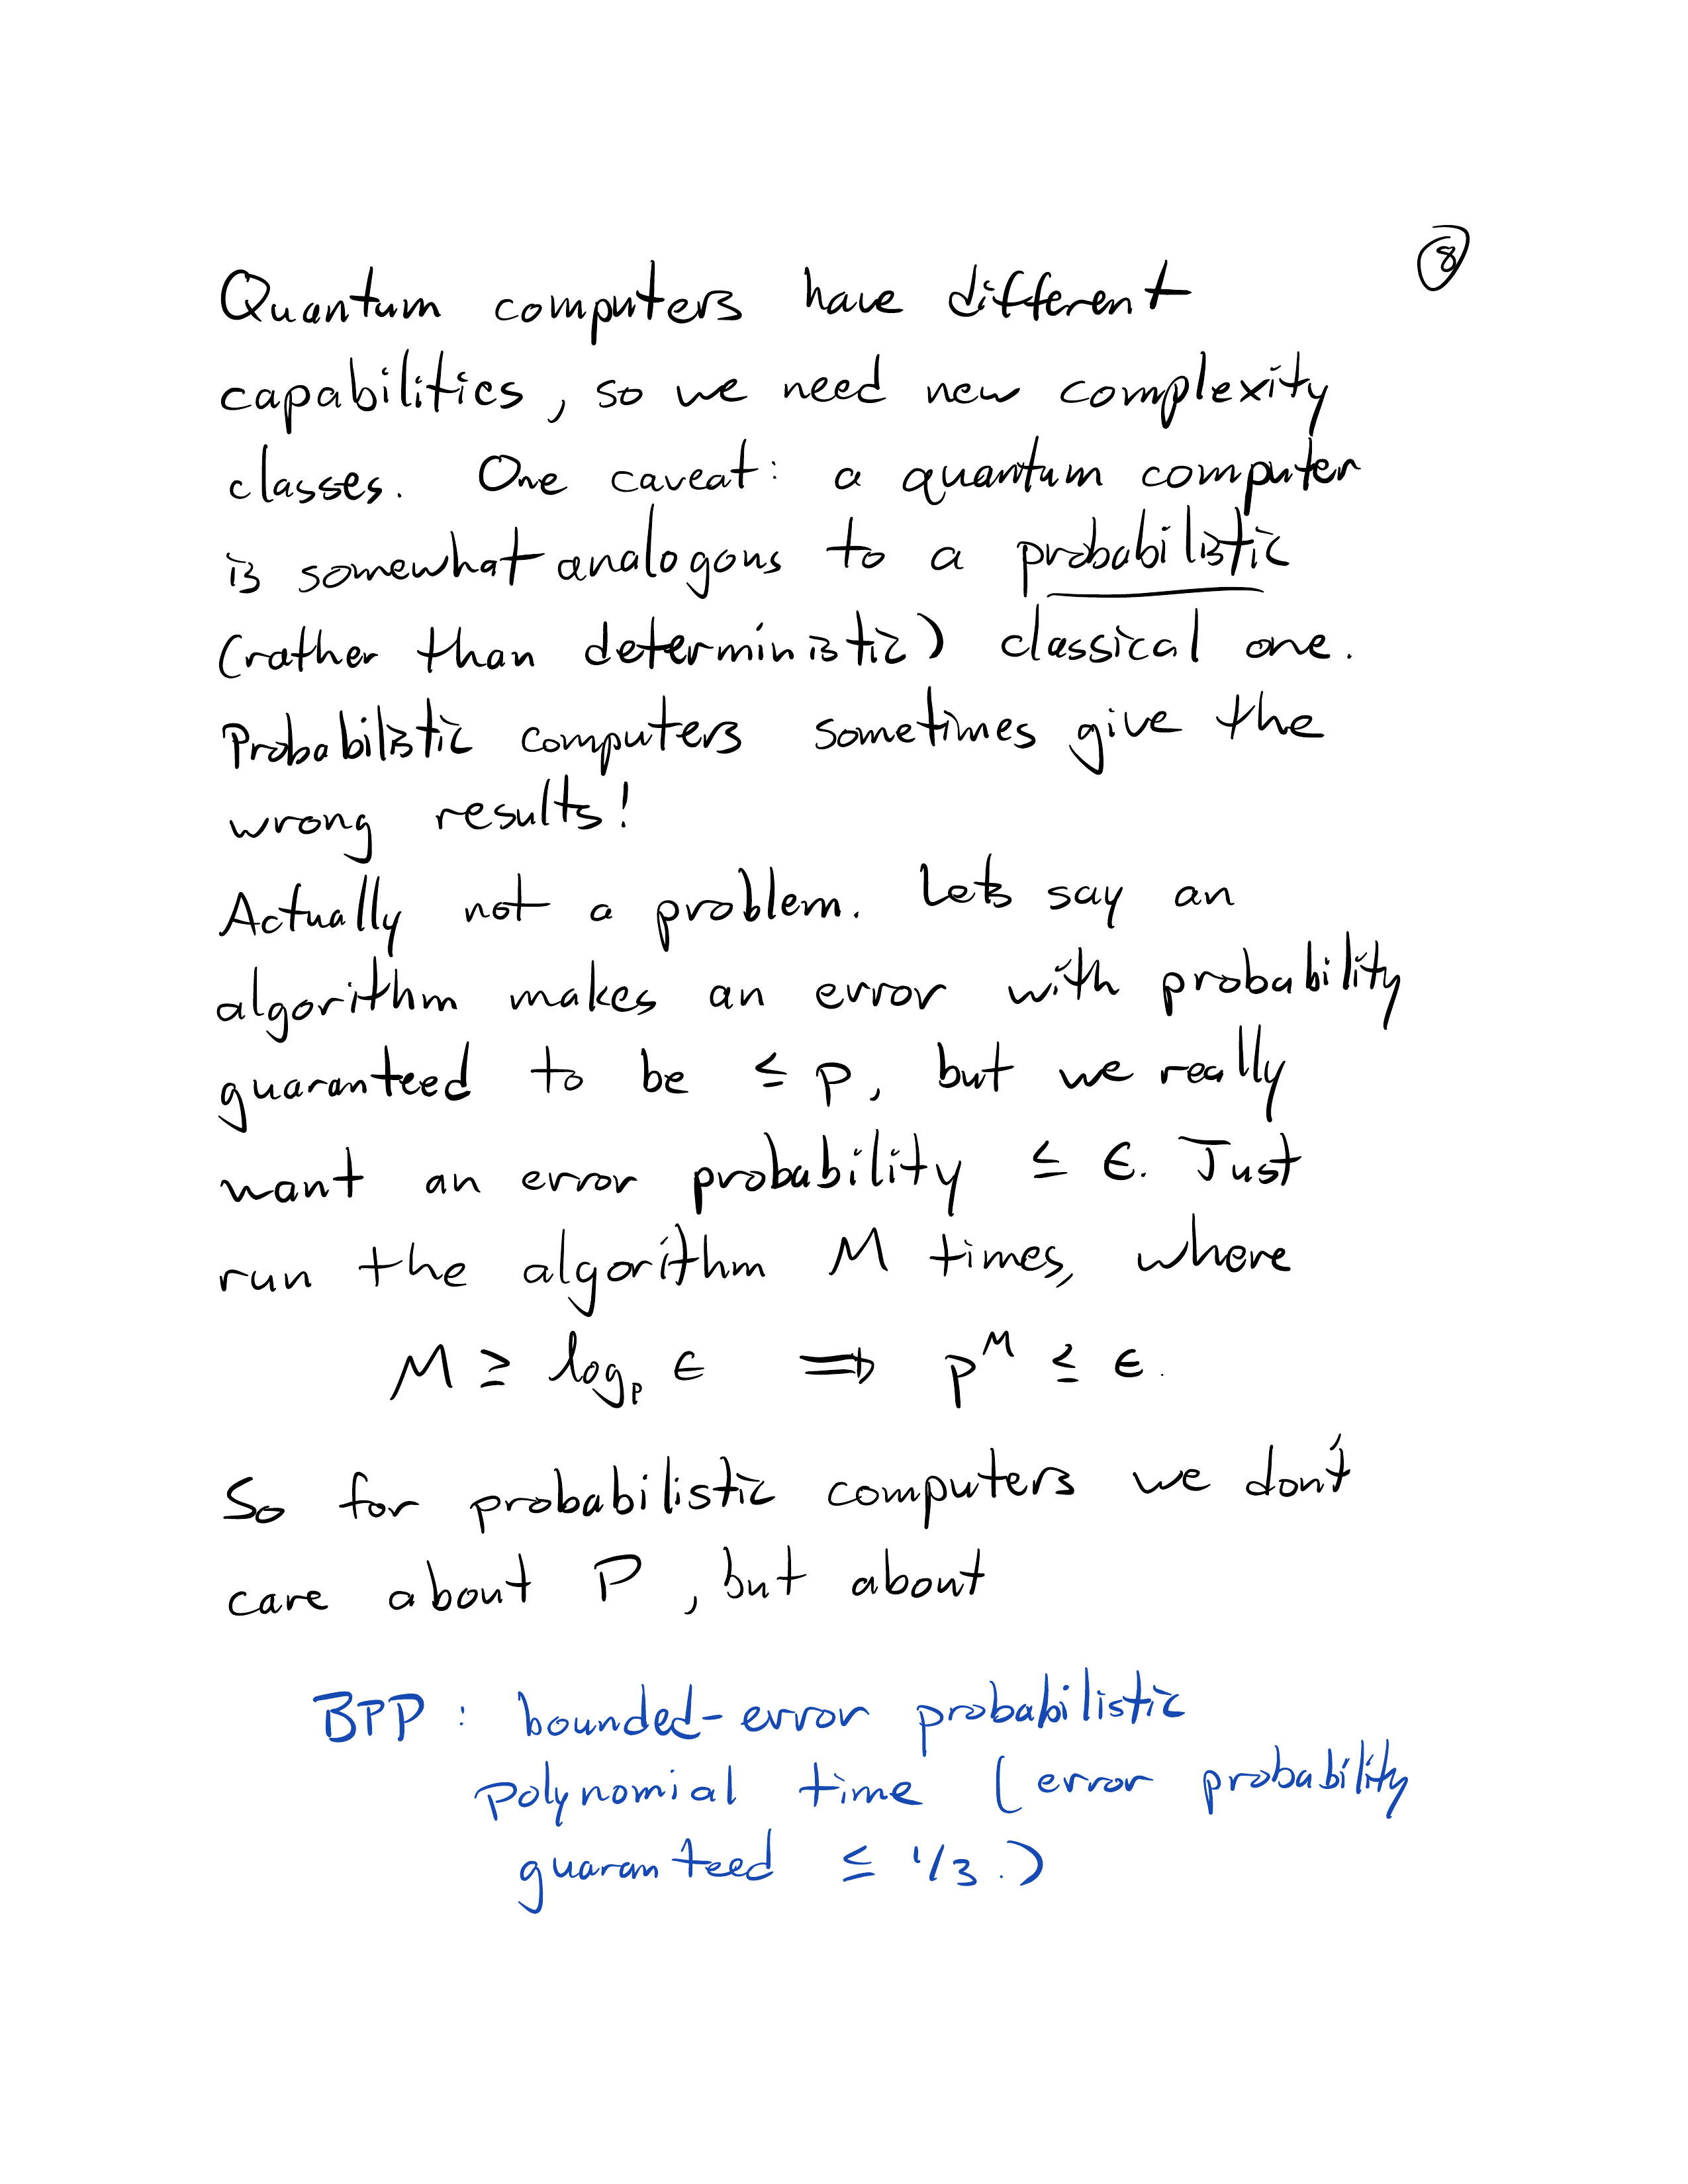 8
Quantum computers have different
capabilities, so we need new complexity
classes. One caveat: a quantum computer
is somewhat analogous to a probabilistic
(rather than deterministic) classical one.
Probabilistic computers sometimes give the
wrong results!
Actually not a problem. Lets say an
algorithm makes an error with probability
guaranteed to be ≤ p, but we really
want an error probability ≤ ϵ. Just
run the algorithm M times, where
M ≥ logₚ ϵ ⟹ pᴹ ≤ ϵ.
So for probabilistic computers we don't
care about P, but about
BPP: bounded-error probabilistic
polynomial time (error probability
guaranteed ≤ 1/3.)